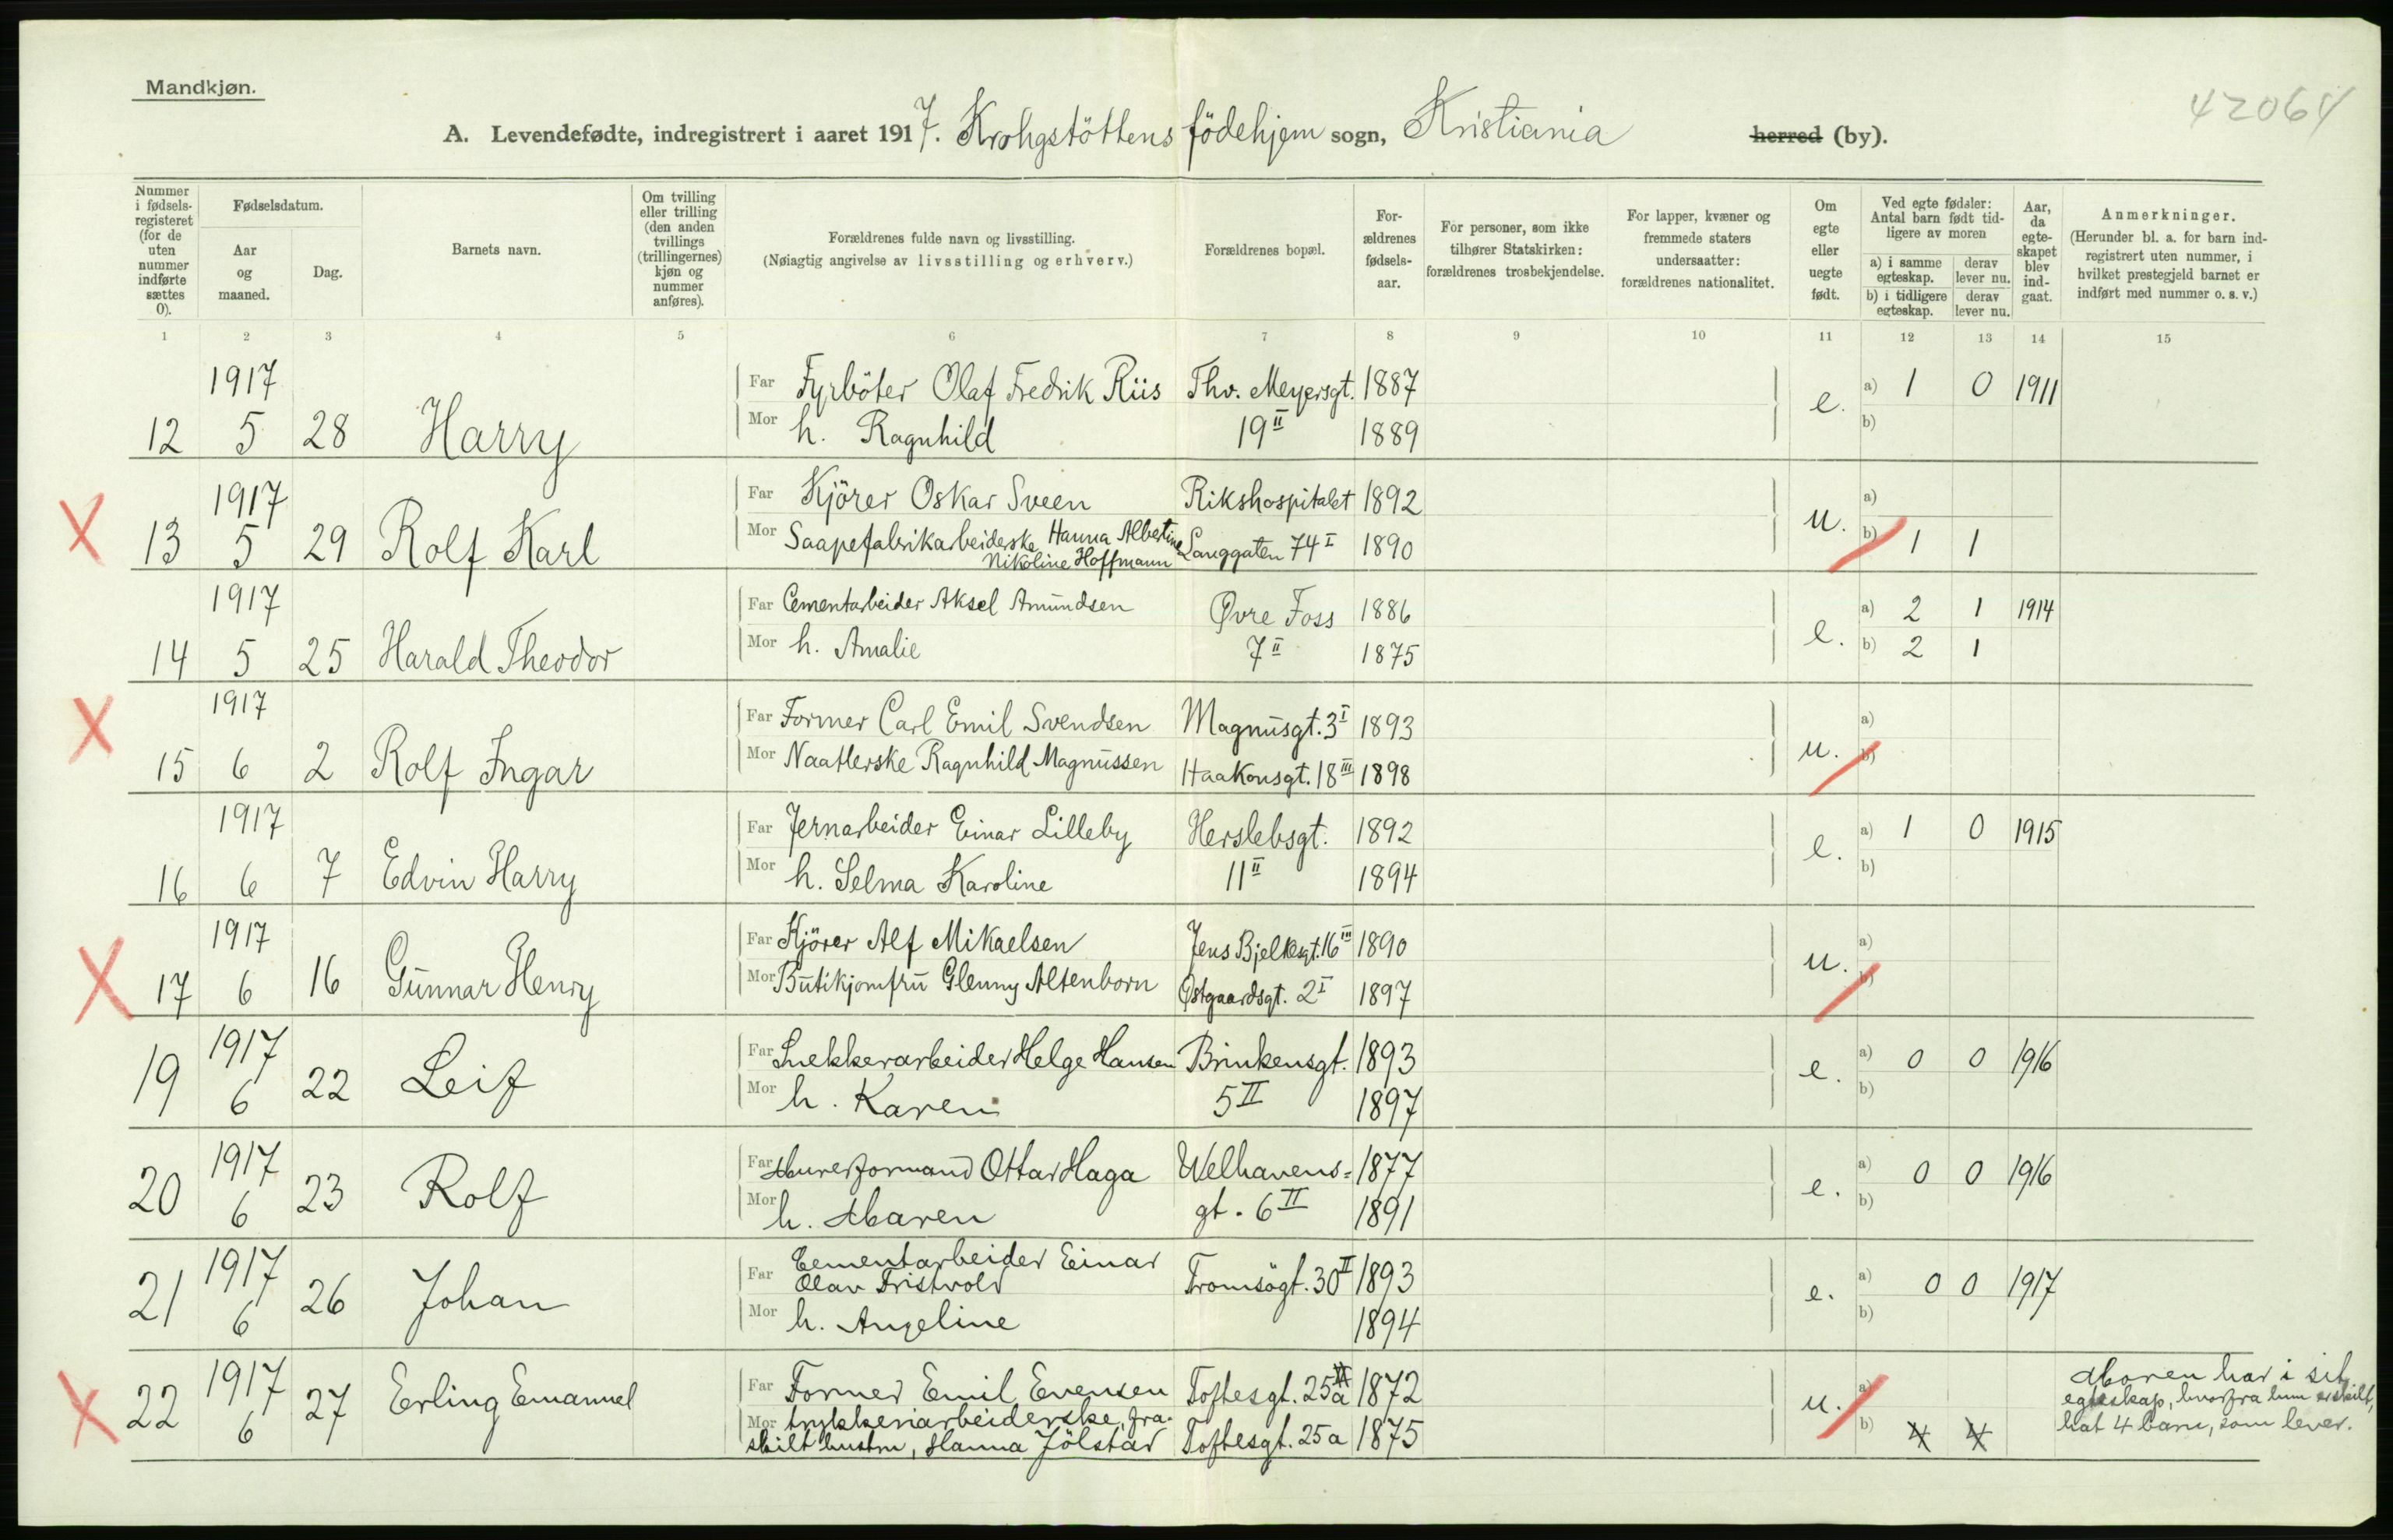 Mandkjøn.
42064
A. Levendefødte, indregistrert i aaret 1917. Krohgstöttens födehjem sogn, Kristiania herred (by).
Nummer i fødsels-registeret (for de uten nummer indførte sættes 0).
Fødselsdatum.
Aar og maaned.
Dag.
Barnets navn.
Om tvilling eller trilling (den anden tvillings (trillingernes) kjøn og nummer anføres).
Forældrenes fulde navn og livsstilling.
(Nøiagtig angivelse av livsstilling og erhverv.)
Forældrenes bopæl.
For-ældrenes fødsels-aar.
For personer, som ikke tilhører Statskirken: forældrenes trosbekjendelse.
For lapper, kvæner og fremmede staters undersaatter: forældrenes nationalitet.
Om egte eller uegte født.
Ved egte fødsler: Antal barn født tid-ligere av moren
a) i samme egteskap. derav lever nu.
b) i tidligere egteskap. derav lever nu.
Aar, da egte-skapet blev ind-gaat.
Anmerkninger.
(Herunder bl. a. for barn ind-registrert uten nummer, i hvilket prestegjeld barnet er indført med nummer o. s. v.)
1 2 3 4 5 6 7 8 9 10 11 12 13 14 15
1917 Far Fyrböter Olaf Fredrik Riis Thv. Meyersgt. 1887 e. a) 1 0 1911
12 5 28 Harry Mor h. Ragnhild 19 II 1889 b)
X 1917 Far Kjörer Oskar Sveen Rikshospitalet 1892 u. a)
13 5 29 Rolf Karl Mor Saapefabrikarbeiderske Hanna Albertine Nikoline Hoffmann Langgaten 74 I 1890 b) 1 1
1917 Far Cementarbeider Aksel Amundsen Øvre Foss 1886 e. a) 2 1 1914
14 5 25 Harald Theodor Mor h. Amalie 7 II 1875 b) 2 1
X 1917 Far Former Carl Emil Svendsen Magnusgt. 3 I 1893 u. a)
15 6 2 Rolf Ingar Mor Naatlerske Ragnhild Magnussen Haakonsgt. 18 III 1898 b)
1917 Far Jernarbeider Einar Lilleby Herslebsgt. 1892 e. a) 1 0 1915
16 6 7 Edvin Harry Mor h. Selma Karoline 11 II 1894 b)
X 1917 Far Kjörer Alf Mikaelsen Jens Bjelkesgt. 16 III 1890 u. a)
17 6 16 Gunnar Henry Mor Butikjomfru Glenny Altenborn Østgaardsgt. 2 I 1897 b)
1917 Far Snekkerarbeider Helge Hansen Brinkensgt. 1893 e. a) 0 0 1916
19 6 22 Leif Mor h. Karen 5 II 1897 b)
1917 Far Murerformand Ottar Haga Welhavens= 1877 e. a) 0 0 1916
20 6 23 Rolf Mor h. Maren gt. 6 II 1891 b)
1917 Far Cementarbeider Einar Olav Tristvold Tromsögt. 30 II 1893 e. a) 0 0 1917
21 6 26 Johan Mor h. Angeline 1894 b)
X 1917 Far Former Emil Evensen Toftesgt. 25 a 1872 u. a) Moren har i sit
22 6 27 Erling Emanuel Mor trykkeriarbeiderske, fra- egteskap, hvorfra hun er skilt,
skilt hustru, Hanna Jölstad Toftesgt. 25 a 1875 b) 4 4 hat 4 barn, som lever.